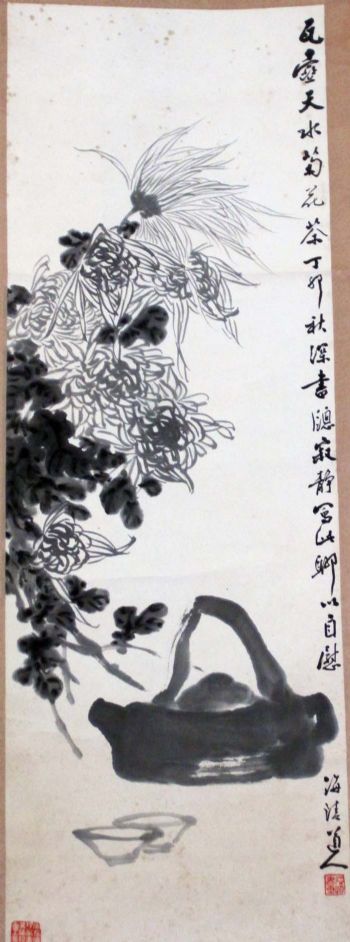 瓦壺天水菊花茶丁卯秋深書牕寂靜寫此聊以自慰
海清道人